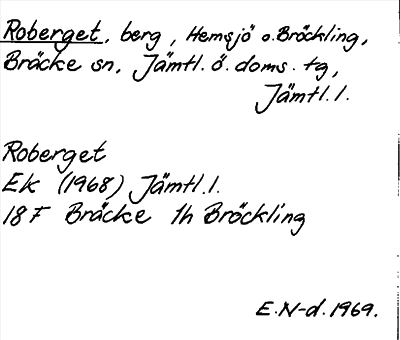 Roberget, berg, Hemsjö o. Bröckling,
Bräcke sn, Jämtl. ö. doms. tg,
Jämtl. l.
Roberget
Ek (1968) Jämtl. l.
18 F Bräcke 1h Bröckling
E. N-d. 1969.